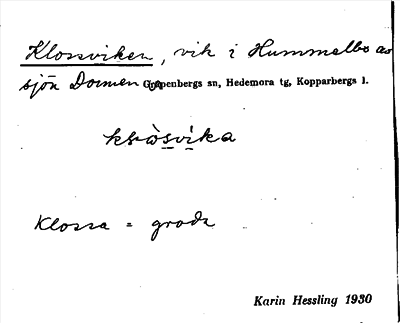 Klossviken, vik i Hummelbo av
sjön Dormen Garpenbergs sn, Hedemora tg, Kopparbergs l.
Klossa = groda
Karin Hessling 1930